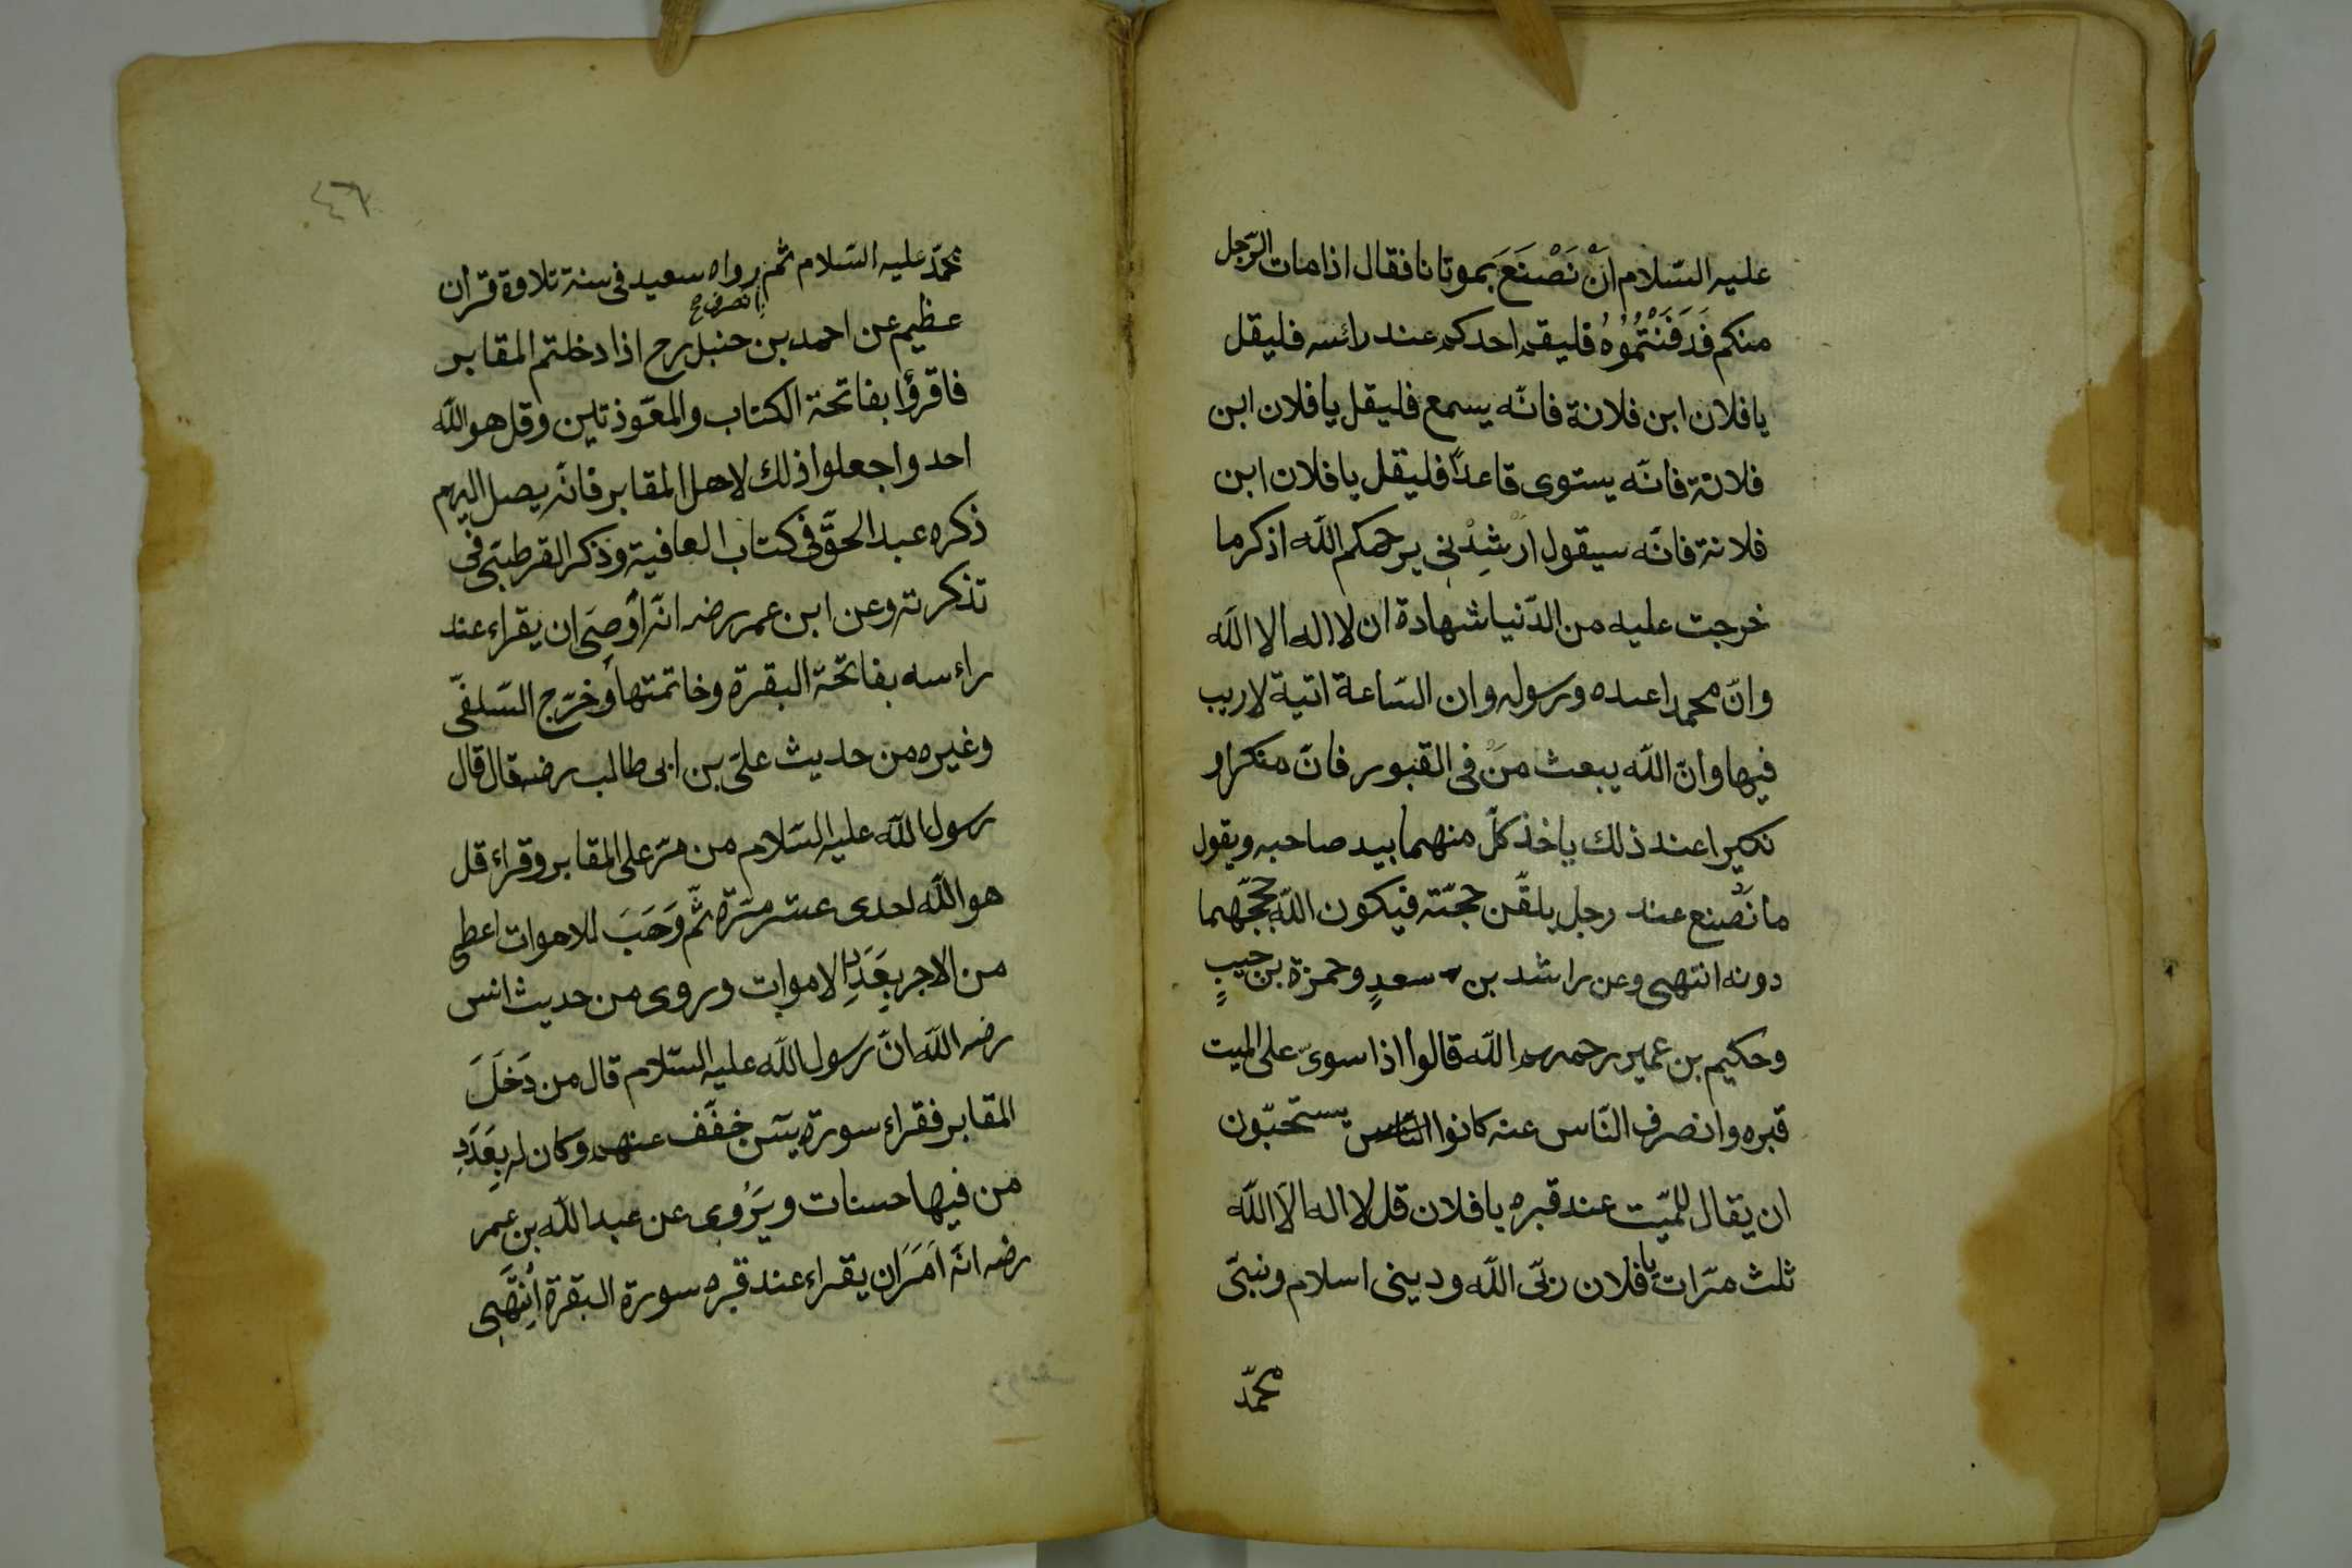 عليه السّلام انْ نَصْنَعَ بموتانا فقال اذا مات الرّجل
منكم فَدَفَنْتُمُوْهُ فليقم احدكم عند رائسه فليقل
يا فلان ابن فلانة فانّه يسمع فليقل يا فلان ابن
فلانة فانّه يستوى قاعدًا فليقل يا فلان ابن
فلانة فانّه سيقول ارْشِدْنِى يرحمكم اللّه اذكر ما
خرجت عليه من الدّنيا شهادة ان لا اله الا اللّه
وانّ محمدا عبده ورسوله وان السّاعة اتية لا ريب
فيها وانّ اللّه يبعث مَنْ فى القبور فانّ منكرا و
نكيرا عند ذلك ياخذ كلّ منهما بيد صاحبه ويقول
ما نَصْنع عند رجل يلقّن حجّته فيكون اللّه حجّهما
دونه انتهى وعن راشد بن سعدٍ وحمزة بن حبيبٍ
وحكيم بن عمير رحمهم اللّه قالوا اذا سوىّ على الميت
قبره وانصرف النّاس عنه كانوا النّاس يستحبّون
ان يقال للميّت عند قبره يا فلان قل لا اله الّا اللّه
ثلث مرّات يا فلان ربّى اللّه ودينى اسلام ونبيّى
محمّد
٤٦
محمّد عليه السّلام ثم رواه سعيد فى سنة تلاوة قرأن
انصرف ح
عظيم عن احمد بن حنبل رح اذا دخلتم المقابر
فاقرؤا بفاتحة الكتاب والمعوّذتين وقل هو اللّه
احد واجعلوا ذلك لاهل المقابر فانّه يصل اليهم
ذكره عبد الحقّ فى كتاب العافية وذكر القرطبىّ فى
تذكرته وعن ابن عمر رضه انّه أوصَى ان يقراء عند
راءسه بفاتحة البقرة وخاتمتها وخرّج السّلفّى
وغيره من حديث علىّ بن ابى طالب رضه قال قال
رسول اللّه عليه السّلام من مرّ على المقابر وقراء قل
هو اللّه احدى عشر مرّة ثمّ وَهَبَ للاموات اعطى
من الاجر بِعَدَدِ الاموات وروى من حديث انس
رضه اللّه انّ رسول اللّه عليه السّلام قال من دَخَلَ
المقابر فقراء سورة يسۤ خفّف عنهم وكان له بِعَدَدِ
من فيها حسنات ويَرْوِى عن عبد اللّه بن عمر
رضه انّه اَمَرَ ان يقراء عند قبره سورة البقرة اِنْتَهَى